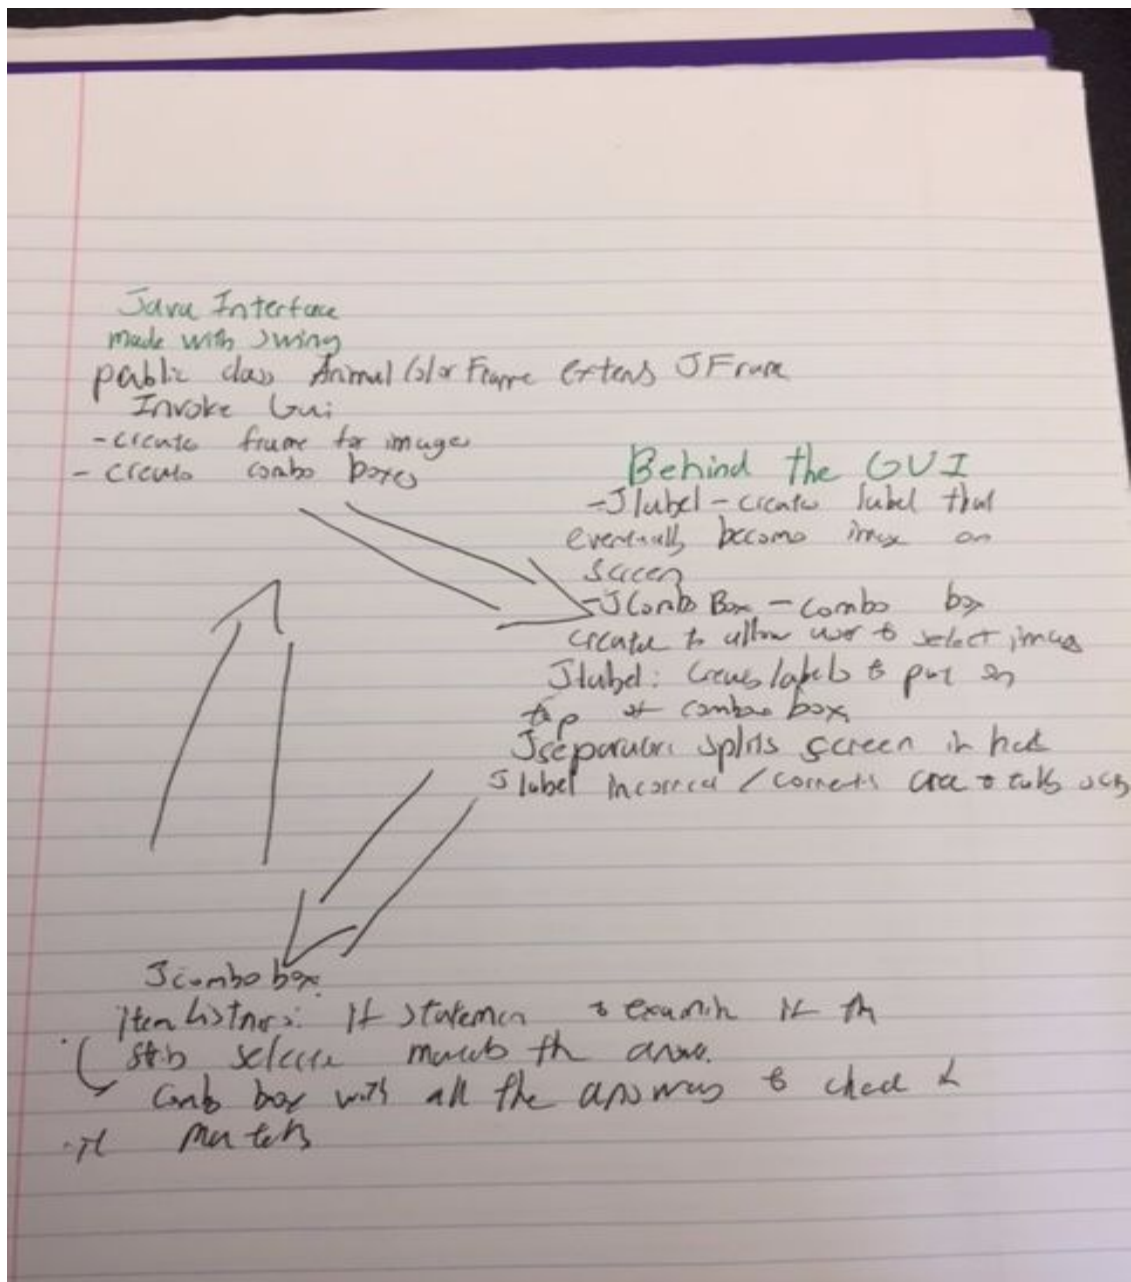 Java Interface
made with swing
public class Animal Color Frame extens JFrame
Invoke Gui
- create frame for image
- create combo boxes
Behind the GUI
- Jlabel - create label that
eventually become image on
screen
- JCombo Box - combo box
create to allow user to select image
Jlabel: labels to put on
top of combo box
Jseparator: splits screen in half
Jlabel incorrect /
Jcombo box
item listners: If statemen to examin if th
selecte th
Comb box with all the answers to check if
it